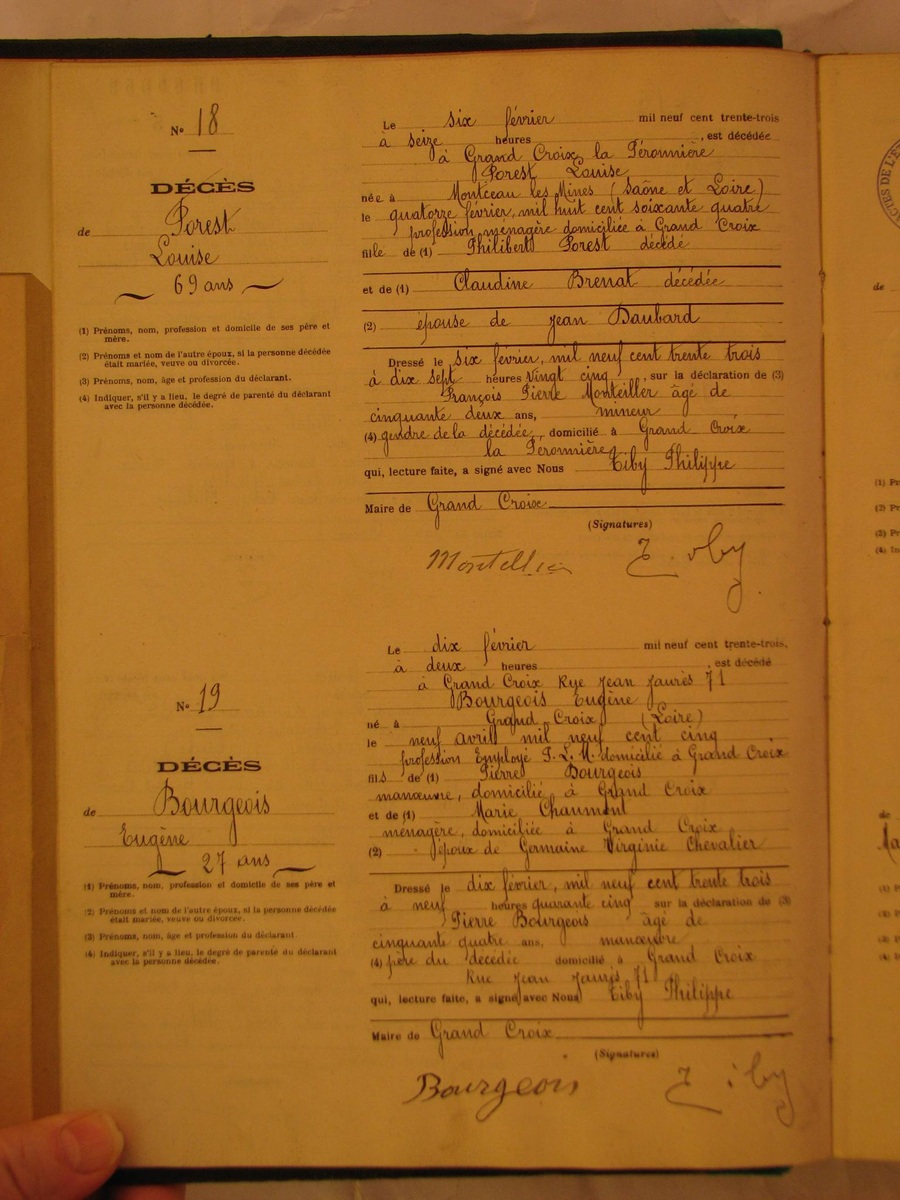 N° 18
DÉCÈS
de Forest
Louise
69 ans
(1) Prénoms, nom, profession et domicile de ses père et
mère.
(2) Prénoms et nom de l'autre époux, si la personne décédée
était mariée, veuve ou divorcée.
(3) Prénoms, nom, âge et profession du déclarant.
(4) Indiquer, s'il y a lieu, le degré de parenté du déclarant
avec la personne décédée.
Le six février mil neuf cent trente-trois
à seize heures, est décédée
à Grand Croix, la Péronnière
Forest Louise
née à Montceau les Mines (Saône et Loire)
le quatorze février, mil huit cent soixante quatre
profession ménagère domiciliée à Grand Croix
fille de (1) Philibert Forest décédé
et de (1) Claudine Brenat décédée
(2) épouse de Jean Daubard
Dressé le six février, mil neuf cent trente trois
à dix sept heures vingt cinq, sur la déclaration de (3)
François Pierre Monteiller âgé de
cinquante deux ans, mineur
(4) gendre de la décédée, domicilié à Grand Croix
la Péronnière
qui, lecture faite, a signé avec Nous Tiby Philippe
Maire de Grand Croix
(Signatures)
N° 19
DÉCÈS
de Bourgeois
Eugène
27 ans
(1) Prénoms, nom, profession et domicile de ses père et
mère.
(2) Prénoms et nom de l'autre époux, si la personne décédée
était mariée, veuve ou divorcée.
(3) Prénoms, nom, âge et profession du déclarant
(4) Indiquer, s'il y a lieu, le degré de parenté du déclarant
avec la personne décédée.
Le dix février mil neuf cent trente-trois,
à deux heures, est décédé
à Grand Croix Rue Jean Jaurès 71
Bourgeois Eugène
né à Grand Croix (Loire)
le neuf avril mil neuf cent cinq
profession Employé P.L.M. domicilié à Grand Croix
fils de (1) Pierre Bourgeois
manœuvre, domicilié à Grand Croix
et de (1) Marie Chaumont
ménagère, domiciliée à Grand Croix
(2) époux de Germaine Virginie Chevalier
Dressé le dix février, mil neuf cent trente trois
à neuf heures quarante cinq sur la déclaration de (3)
Pierre Bourgeois âgé de
cinquante quatre ans, manœuvre
(4) père du décédé domicilié à Grand Croix
Rue Jean Jaurès 71
qui, lecture faite, a signé avec Nous Tiby Philippe
Maire de Grand Croix
(Signatures)
Bourgeois